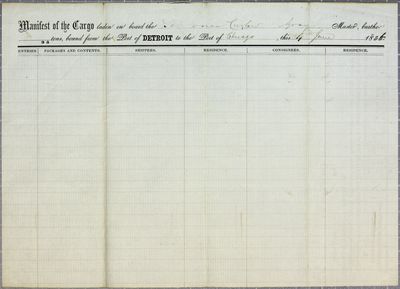 Manifest of the Cargo laden on board the Master, burthen
95 tons, bound from the Port of DETROIT to the Port of Chicago, this 4 June 183
ENTRIES. PACKAGES AND CONTENTS. SHIPPERS. RESIDENCE. CONSIGNEES. RESIDENCE.